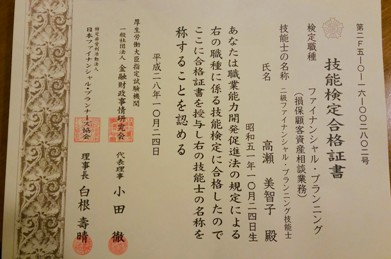 第二F五一〇一六一〇〇二八〇二号
技能検定合格証書
検定職種
ファイナンシャル・プランニング
(損保顧客資産相談業務)
技能士の名称
二級ファイナンシャル・プランニング技能士
氏名
高瀬 美智子 殿
昭和五一年一〇月二四日生
あなたは職業能力開発促進法の規定による
右の職種に係る技能検定に合格したので
ここに合格証書を授与し右の技能士の名称を
称することを認める
平成二八年一〇月二四日
厚生労働大臣指定試験機関
一般社団法人 金融財政事情研究会
代表理事 小田 徹
特定非営利活動法人
日本ファイナンシャル・プランナーズ協会
理事長 白根 壽晴